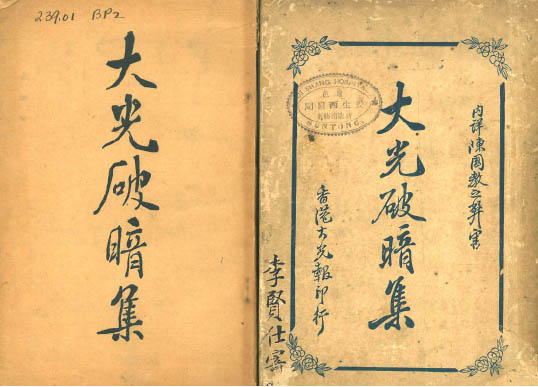 239.01 BP2
大光破暗集
內詳陳國教之弊害
大光破暗集
香港大光報印行
李賢仕寄
SHANG HOSPITAL
SUNTONG